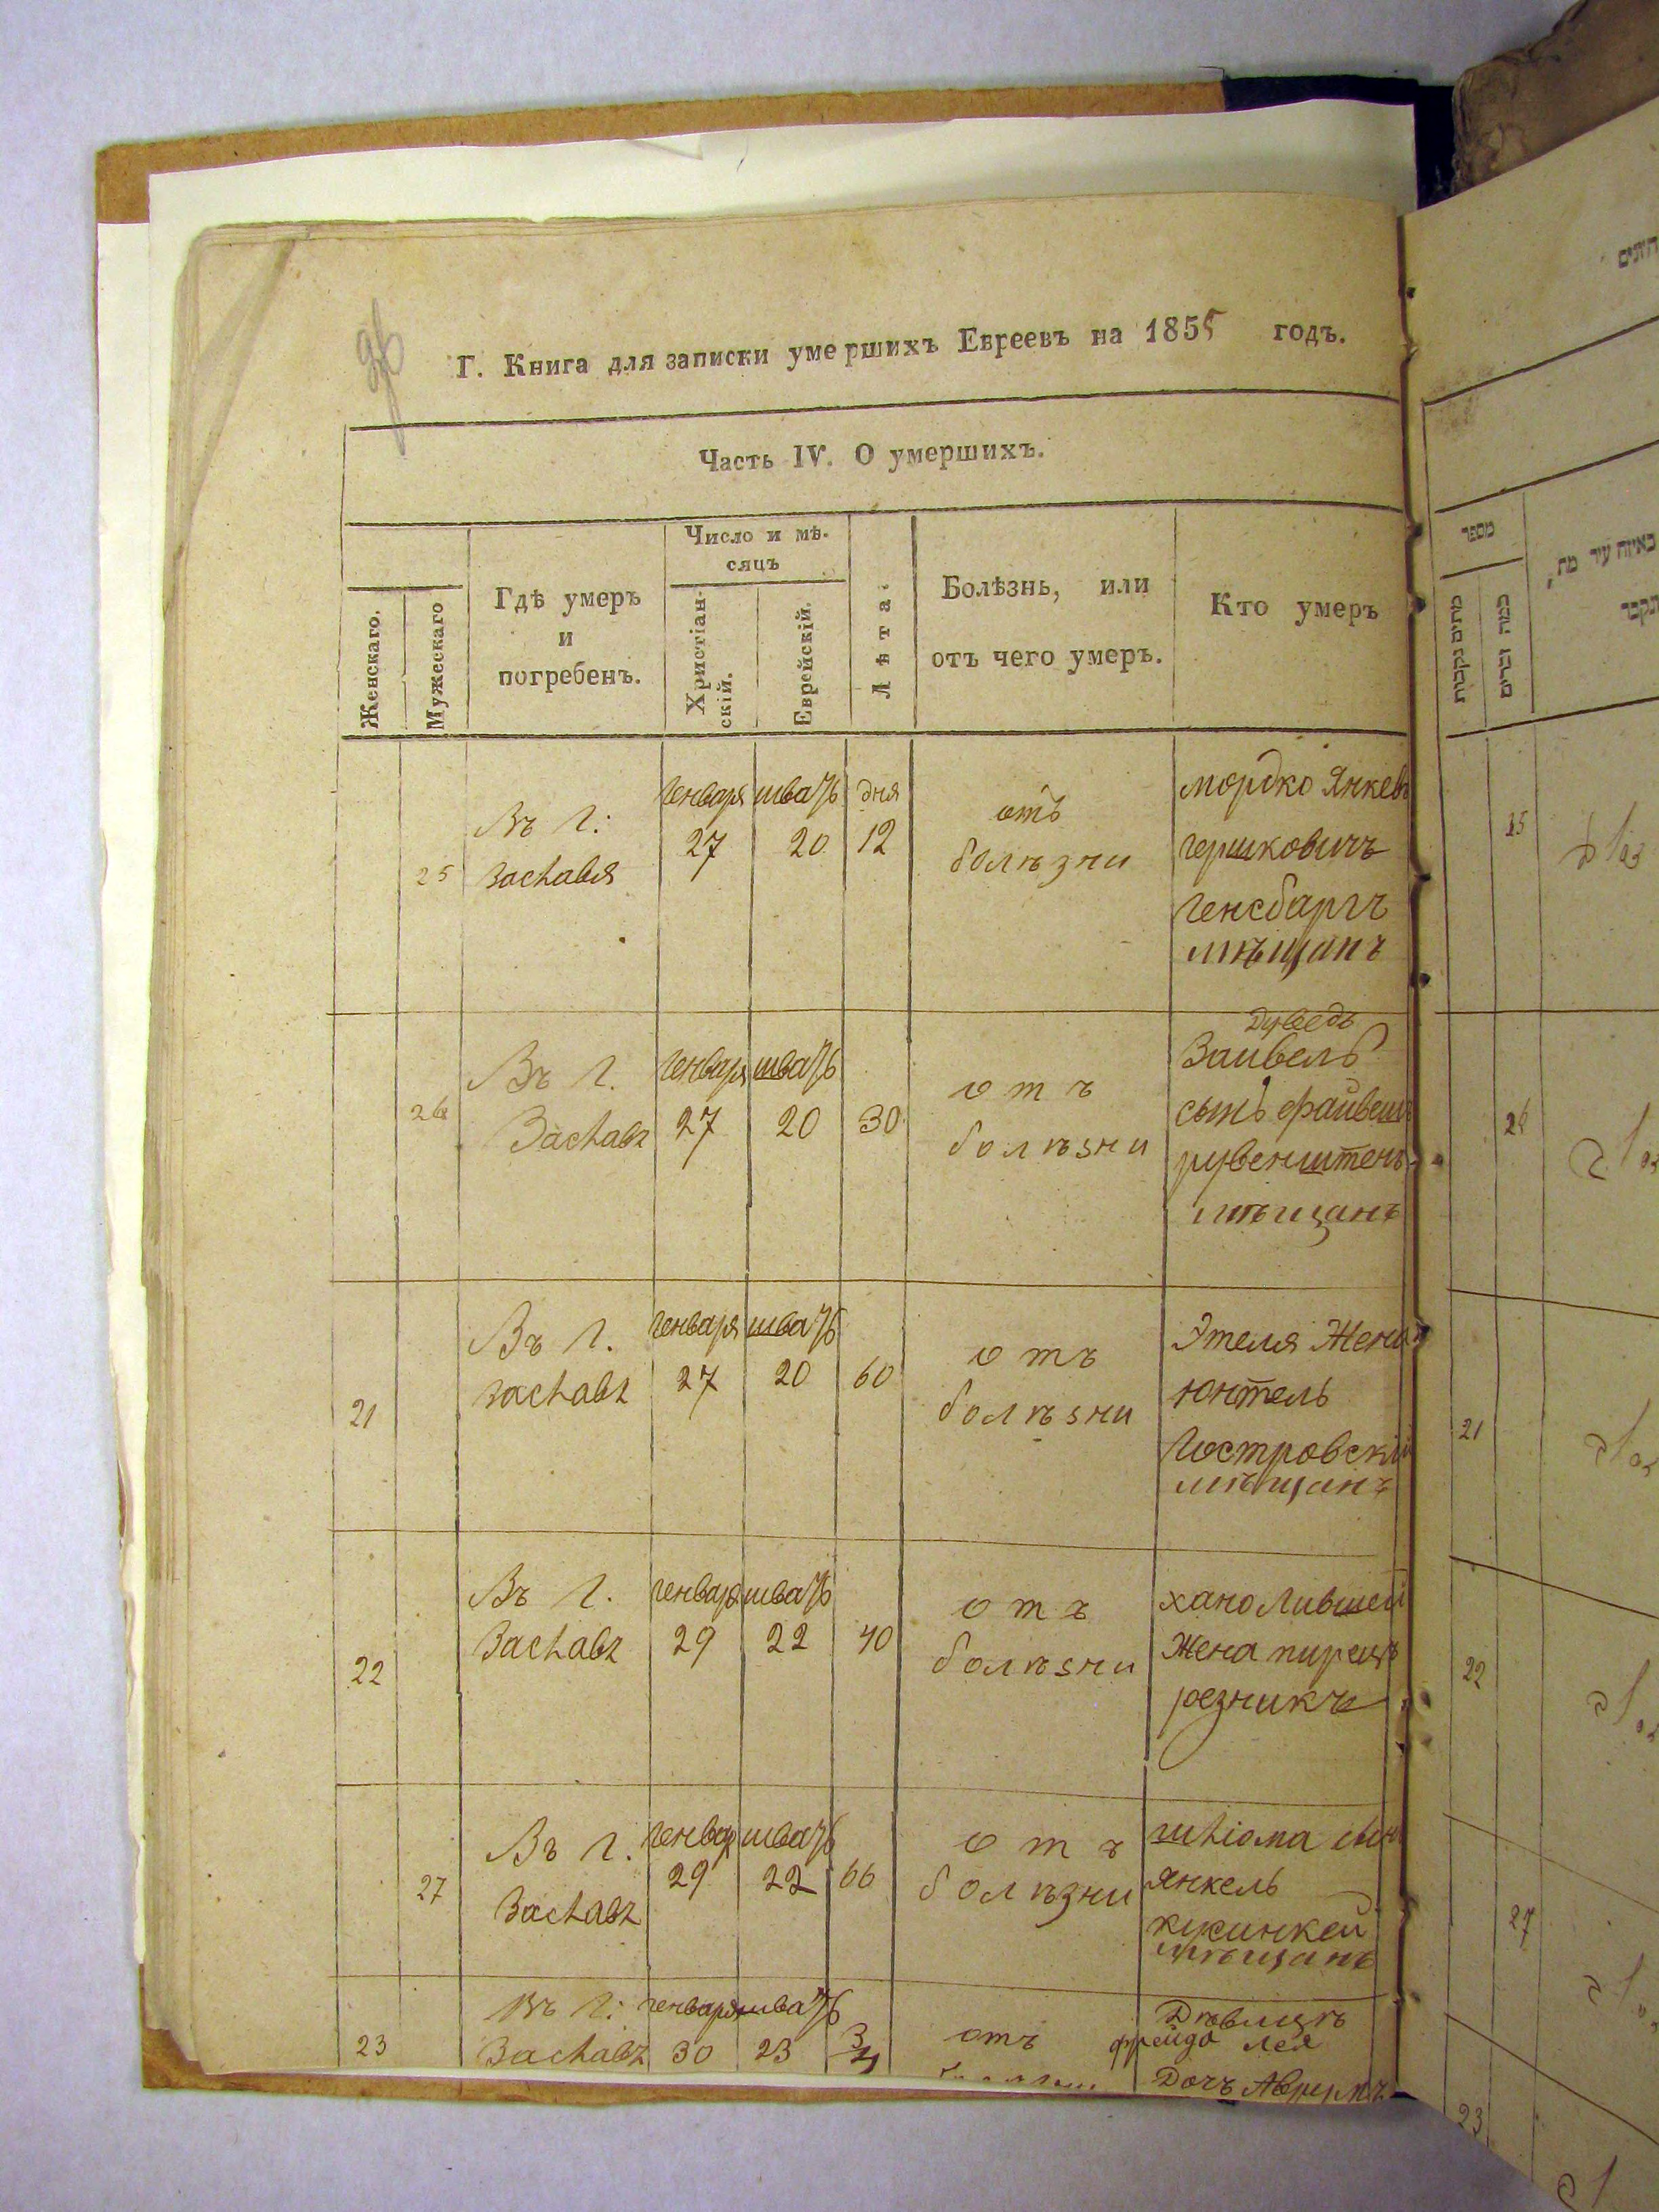 Г. Книга для записки умершихъ Евреевъ на 1855 годъ.
Часть IV. О умершихъ.
Женскаго.
Мужескаго
Гдѣ умеръ
и
погребенъ.
Число и мѣ-
сяцъ
Христіан-
скій.
Еврейскій.
Лѣта.
Болѣзнь, или
отъ чего умеръ.
Кто умеръ
25
Въ Г:
Заславя
Генваря
27
шватъ
20
дня
12
отъ
болѣзни
мордко Янкев
гершковичъ
Генсбаргъ
мѣщанъ
26
Въ Г.
Заславъ
Генваря
27
шватъ
20
30
отъ
болѣзни
Дуведь
Зайвель
сынъ файвеш
рувенштень
мѣщанъ
21
Въ Г.
Заславъ
Генваря
27
шватъ
20
60
отъ
болѣзни
Этеля Жена
Юнтель
Гостровскій
мѣщанъ
22
Въ Г.
Заславъ
генваря
29
шватъ
22
40
отъ
болѣзни
хано
Жена
резникъ
27
Въ Г.
Заславъ
Генвар
29
шватъ
22
66
отъ
болѣзни
шліома сын
янкель
мѣщанъ
23
Въ Г:
Заславъ
генваря
30
шватъ
23
3/4
отъ
Дѣвицъ
фрейда лея
Дочъ
מספר
מתים נקבות
כמה זכרים
באיזה עיר מת,
נקבר
25
26
21
22
27
23